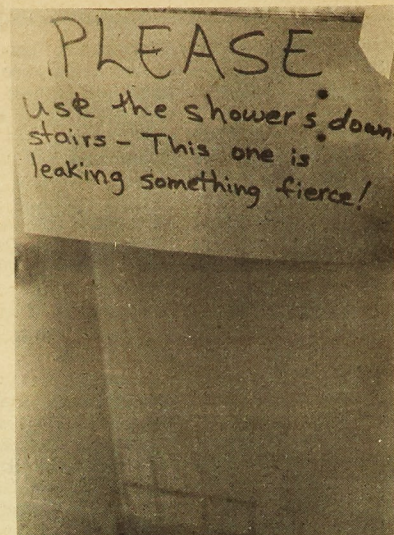 PLEASE
use the showers down-
stairs - This one is
leaking something fierce!